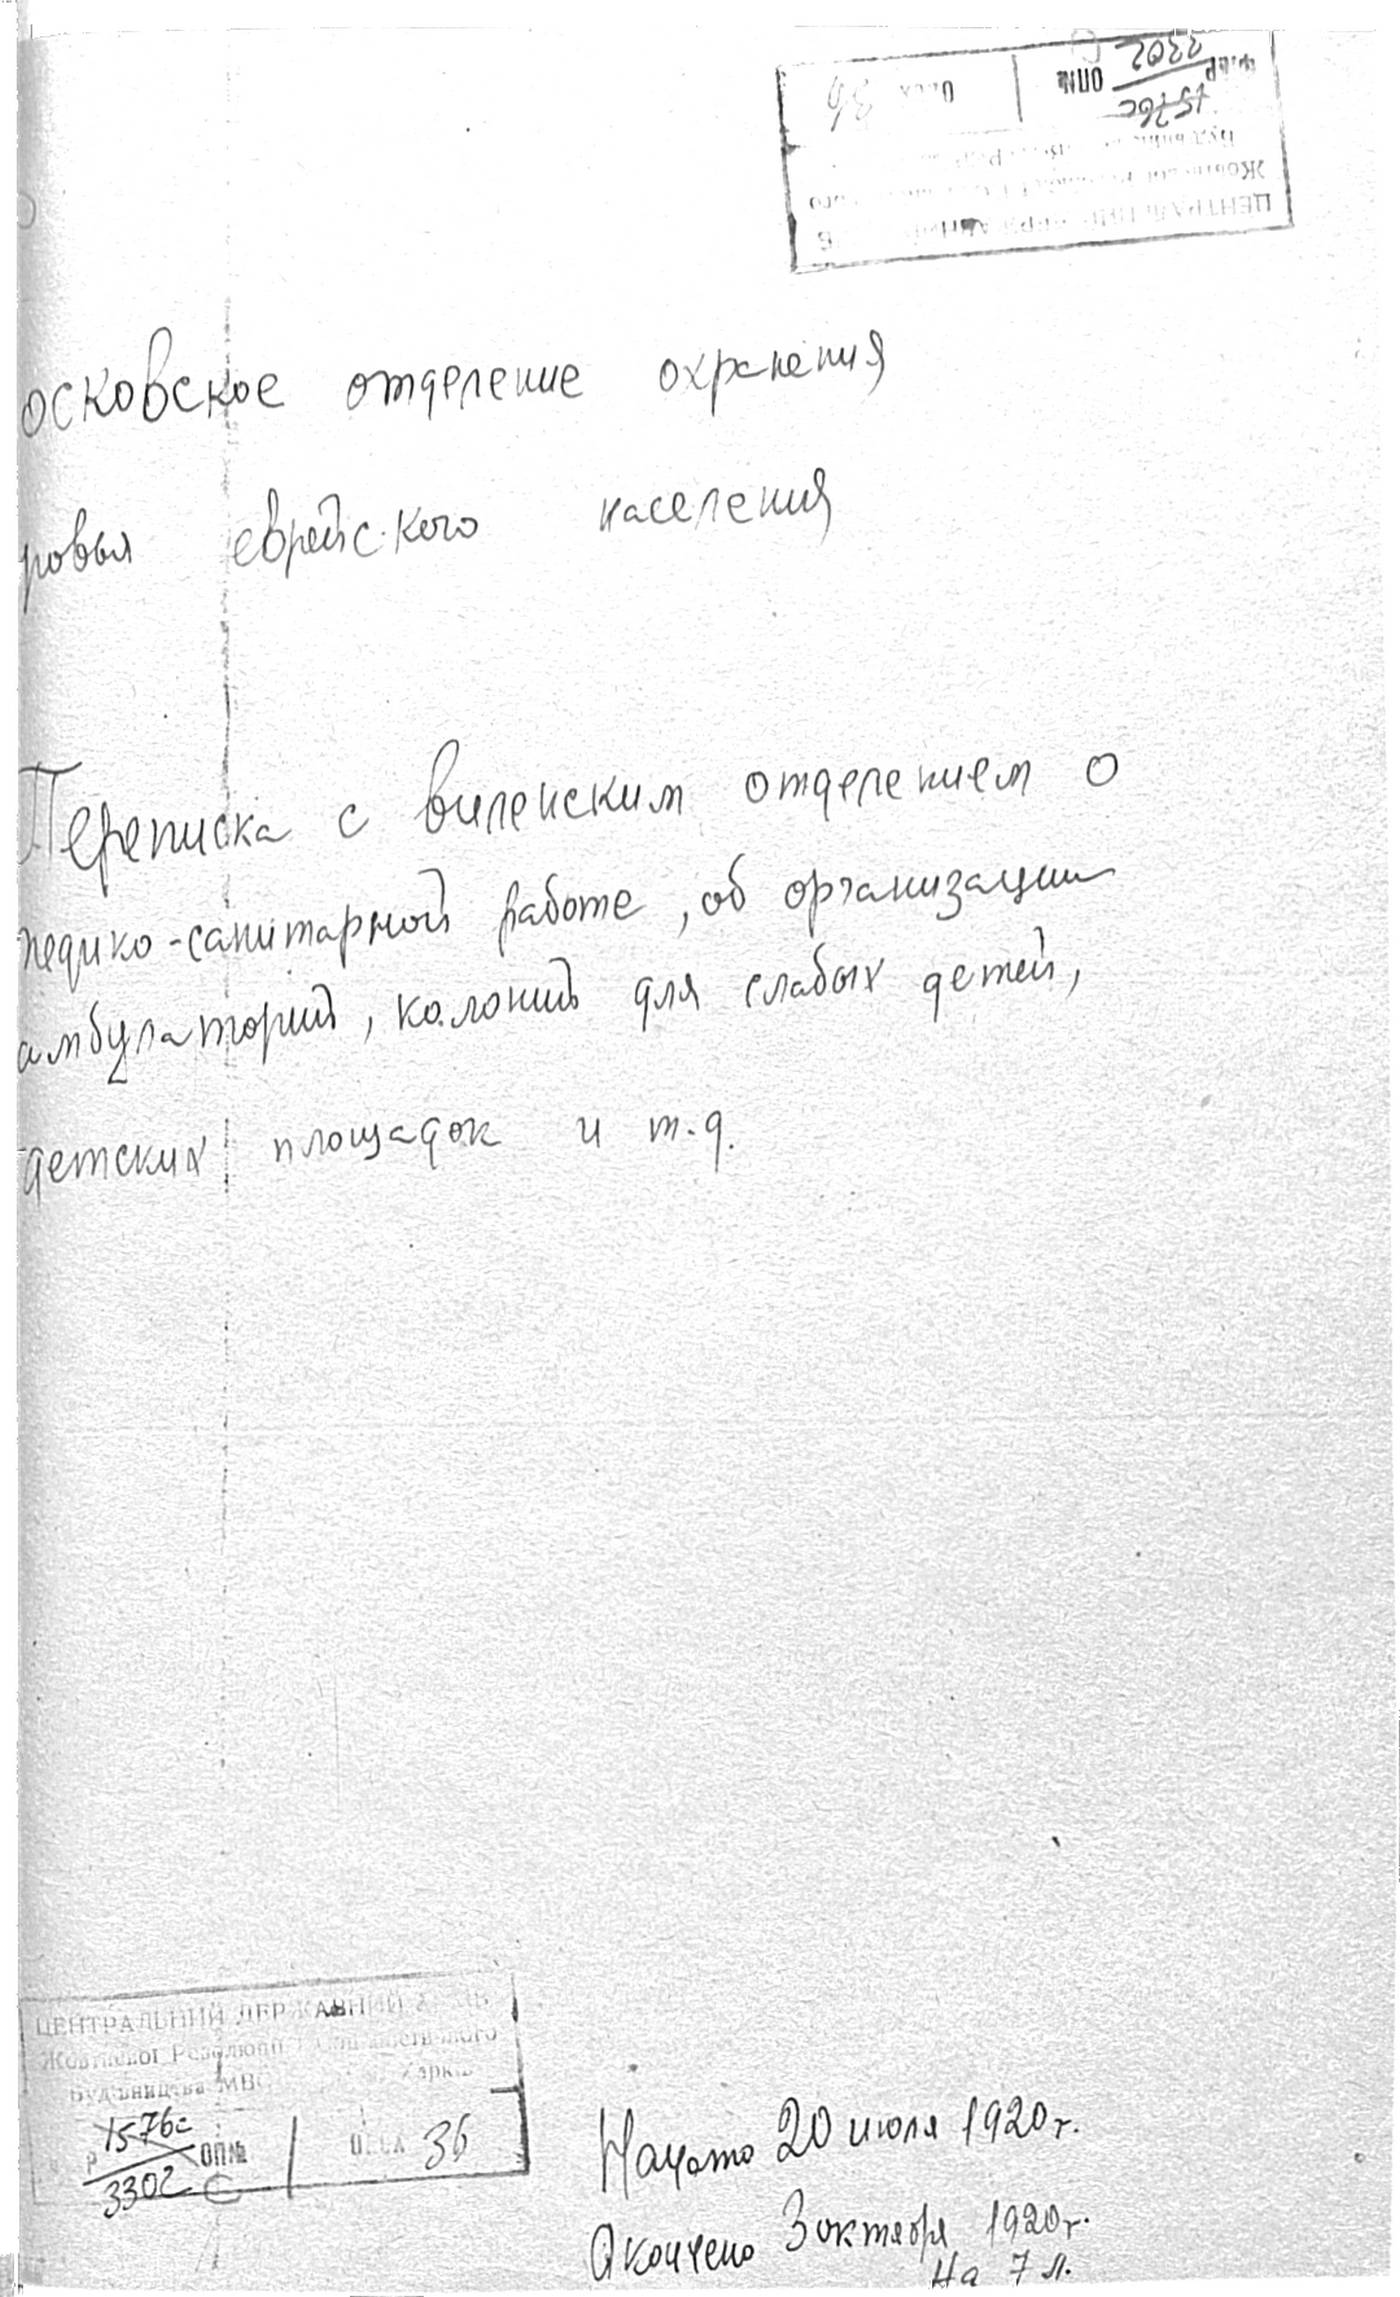 ЦЕНТРАЛЬНИЙ ДЕРЖАВНИЙ
Р 1576с
3302 ОПИС 36
осковское отделение охранения
ровья еврейского населения
Переписка с виленским отделением о
медико-санитарной работе, об организации
амбулаторий, колоний для слабых детей,
детских площадок и т.д.
ЦЕНТРАЛЬНИЙ ДЕРЖАВНИЙ
Жовтневої Революції
Будівництва МВС Харків
Р 1576с ОП№
3302 С
36
Начато 20 июля 1920г.
Окончено 3 октября 1920г.
На 7 л.